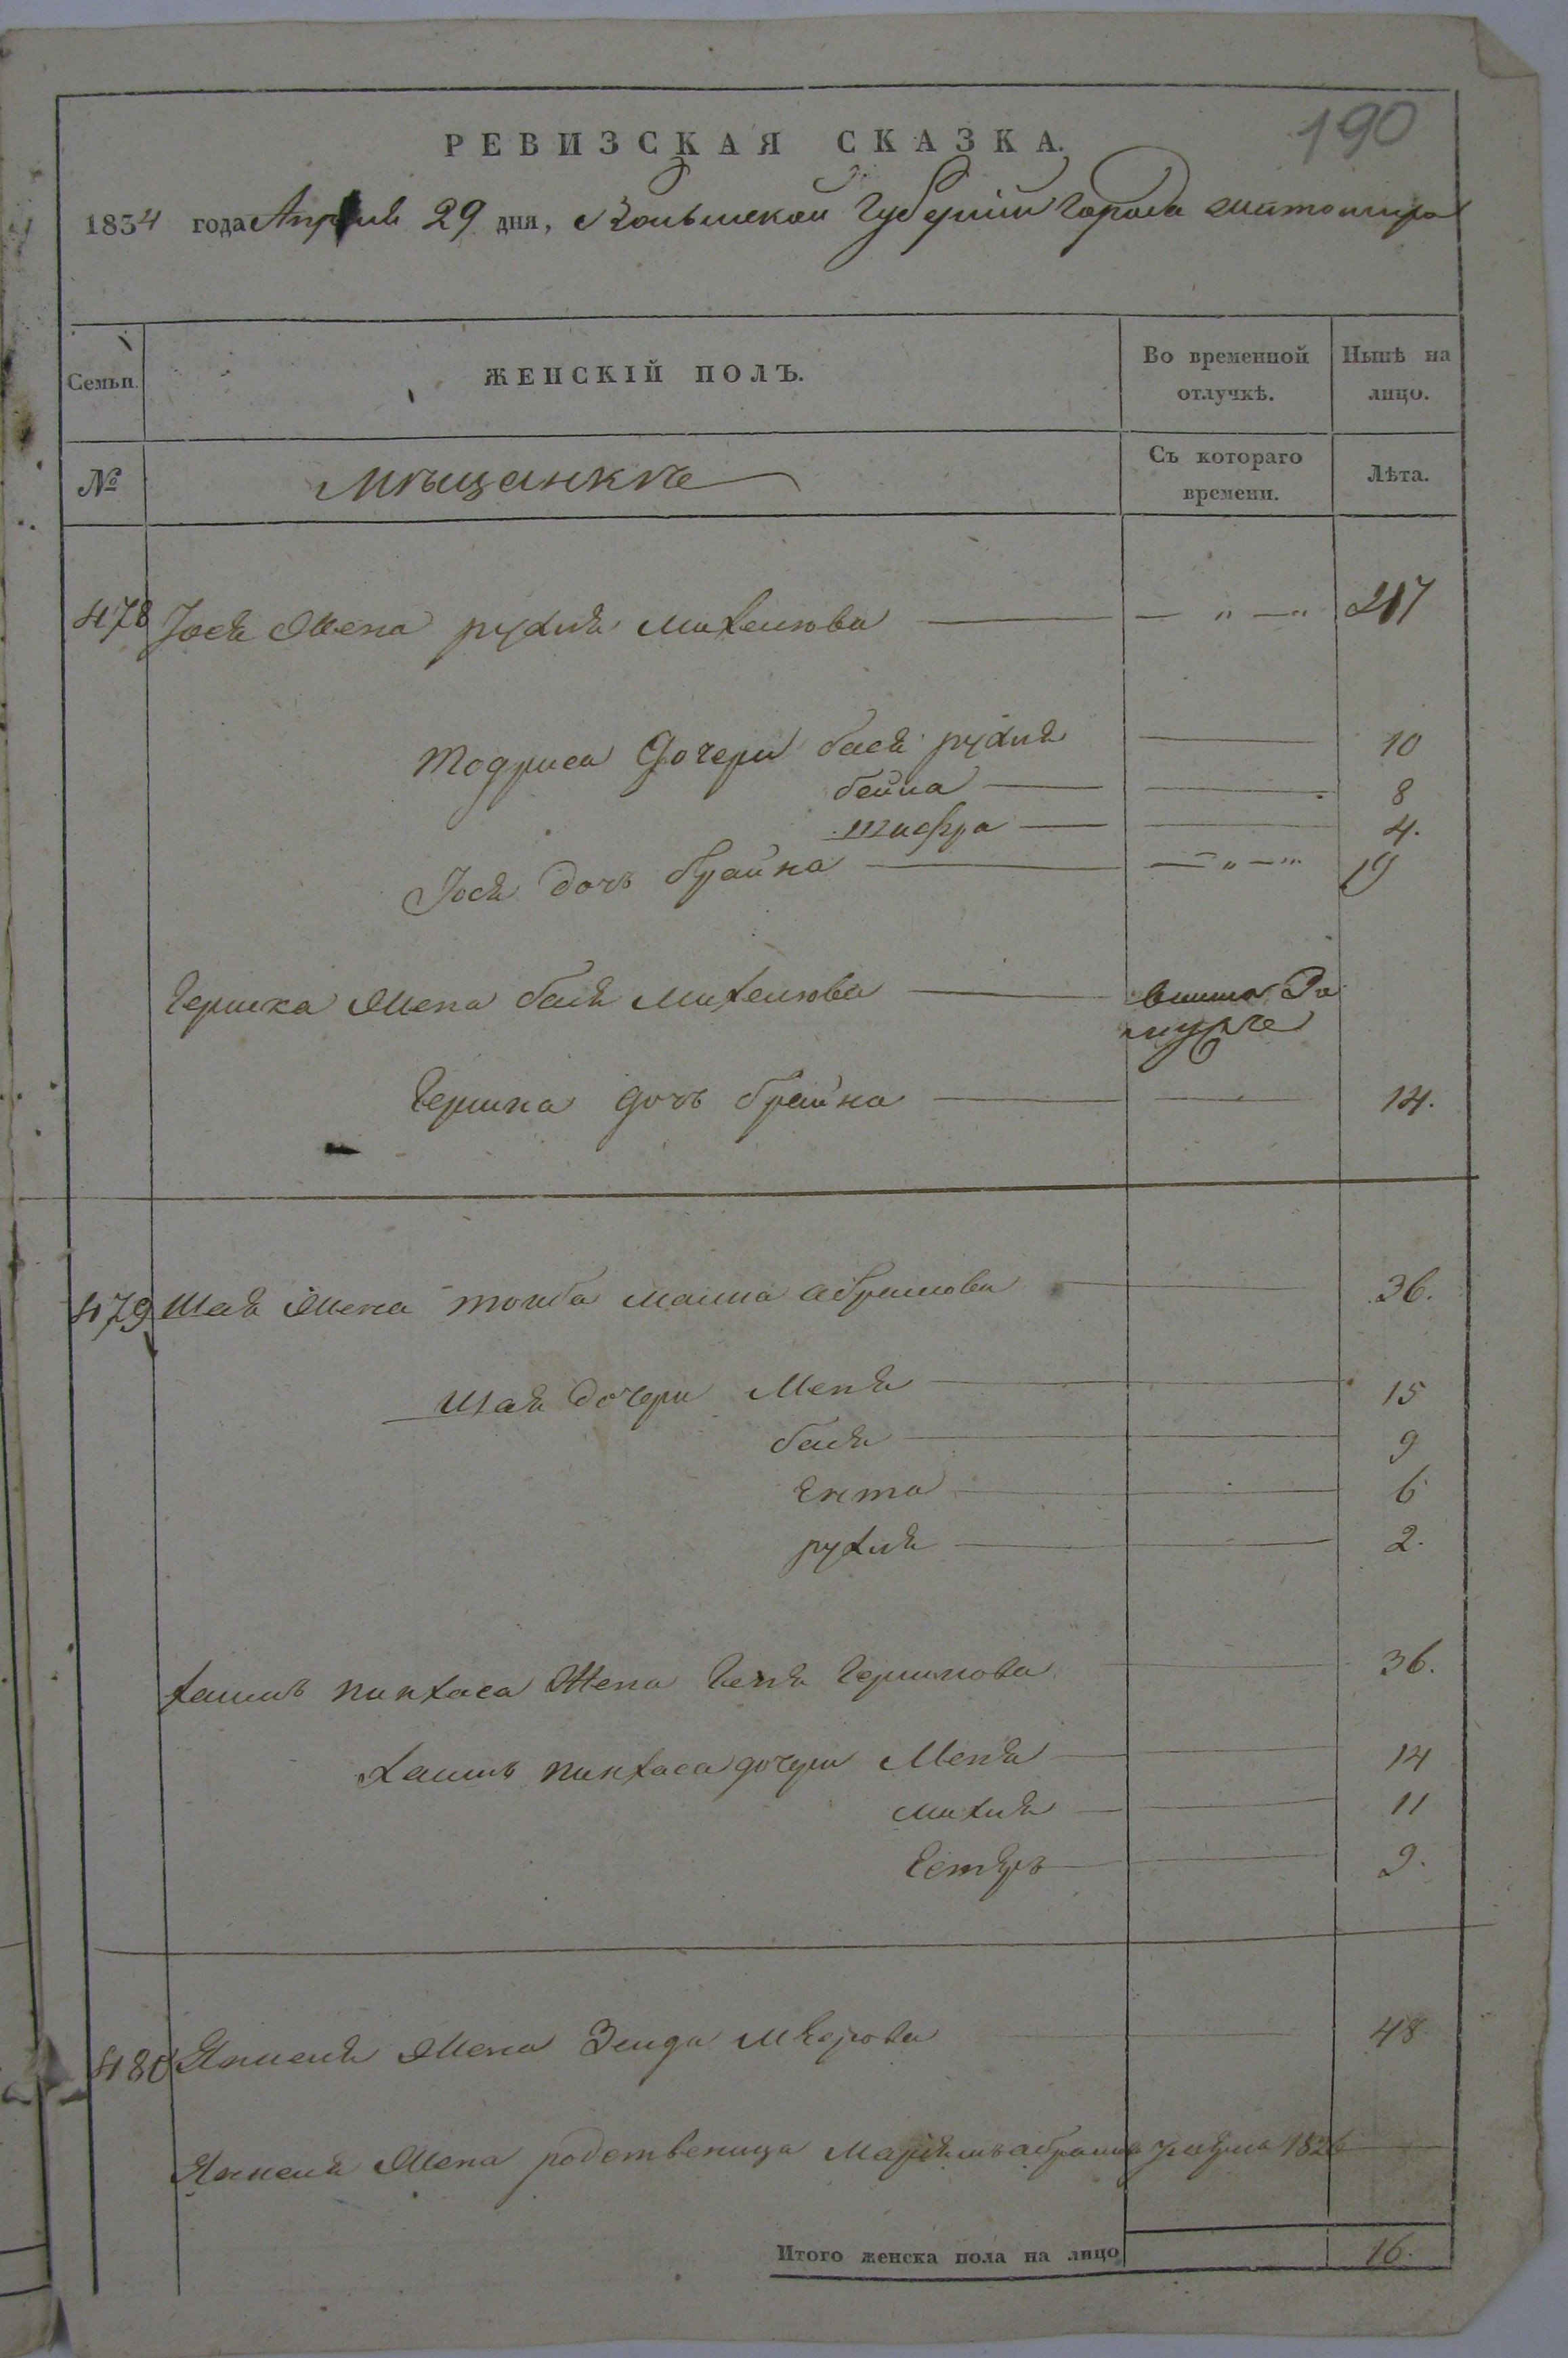 190
РЕВИЗСКАЯ СКАЗКА.
1834 года Апреля 29 дня, Волынской Губернии Города Житомира
Семьи. ЖЕНСКІЙ ПОЛЪ. Во временной отлучкѣ. Нынѣ на лицо.
№ Мѣщанкѣ Съ котораго времени. Лѣта.
478 Іося Жена рухля Михелиова — „ — „
Тодриса Дочери бася рухля 10
бейла 8
шифра 4.
Іося дочь брайна — „ — „ 19
Гершка Жена бася Михелиова вышла За
мужъ
Гершка дочь брайна 14.
479 Шая Жена толба малка абрамова 36.
Шая дочери Меня 15
бася 9
Ента 6
рухля 2.
хаимъ пинхаса Жена Геня Гершкова 36.
хаимъ пинхаса дочери Меня 14
михля 11
Естеръ 9.
480 Янкеля Жена Зелда Меерова 48
Янкеля Жена родственица Маріямъ абрамова умерла 1826
Итого женска пола на лицо 16.